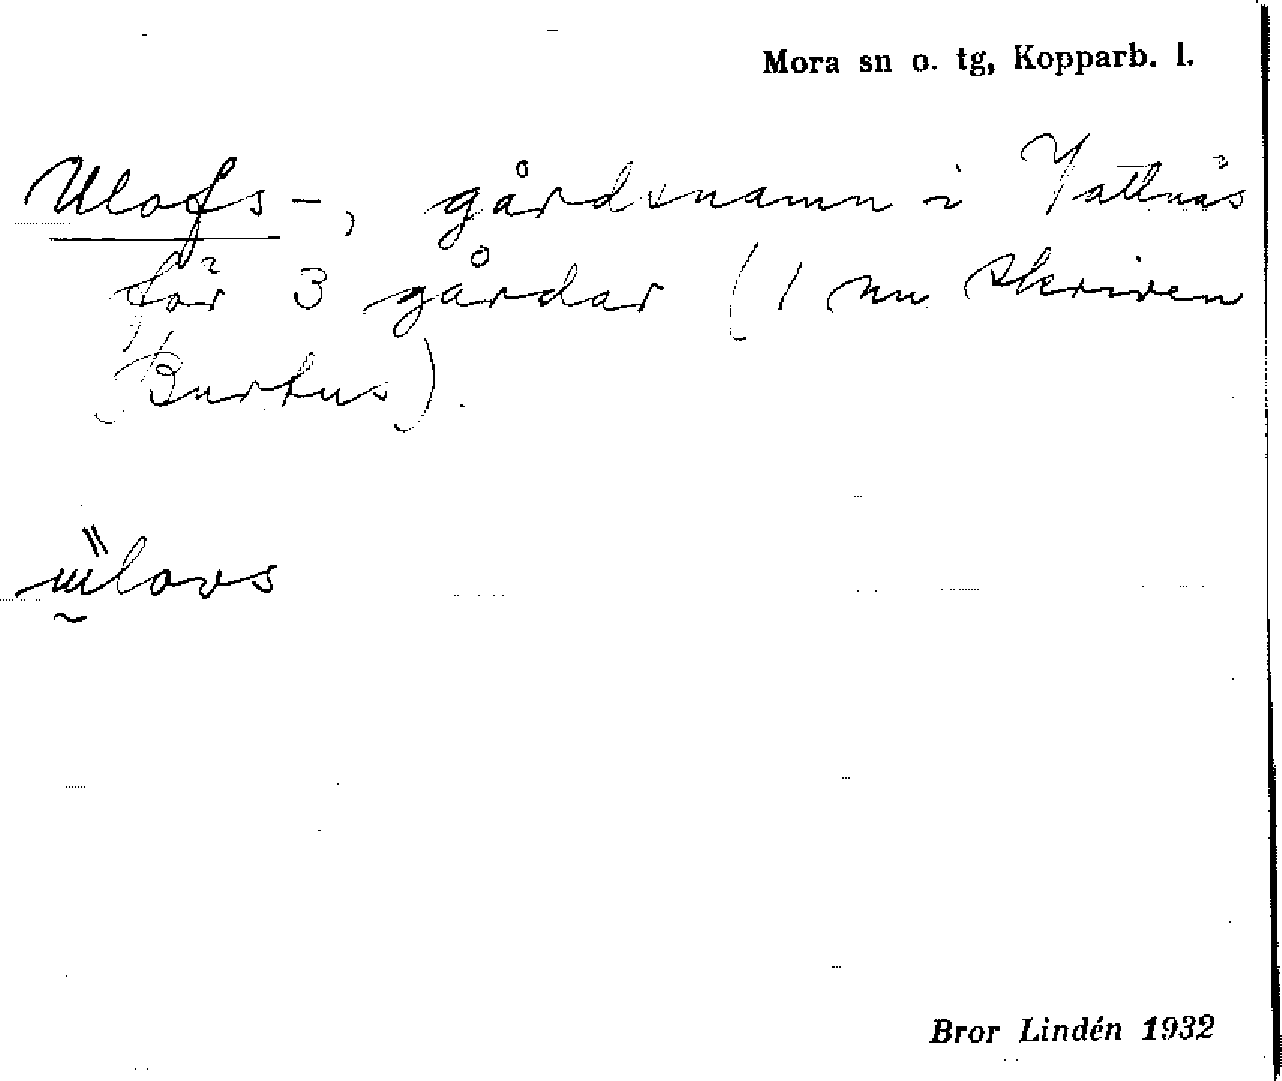 Mora sn o. tg, Kopparb. l.
Ulofs-, gårdsnamn i Vattnäs
för 3 gårdar (1 nu skriven
Burtus).
ɯ̈lovs
Bror Lindén 1932